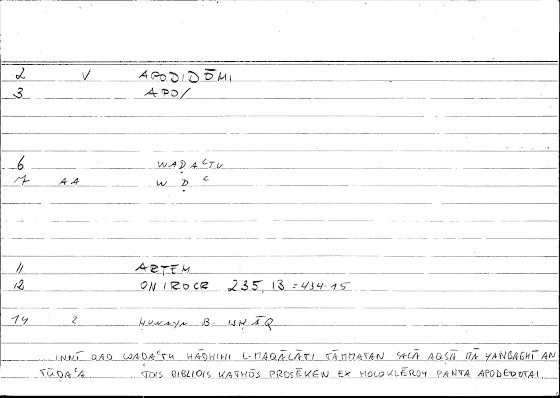 2 V APODIDŌMI
3 APO/
6 WAḌAʿTU
7 AA W Ḍ ʿ
11 ARTEM
12 ONIROCR 235, 13 = 434.15
14 2 ḤUNAYN B. ISḤĀQ
INNĪ QAD WAḌAʿTU HĀḎIHI L-MAQĀLATI TĀMMATAN ʿALĀ AQṢĀ MĀ YANBAĠĪ AN
TŪḌAʿA TOIS BIBLIOIS KATHŌS PROSĒKEN EX HOLOKLĒROY PANTA APODEDOTAI.